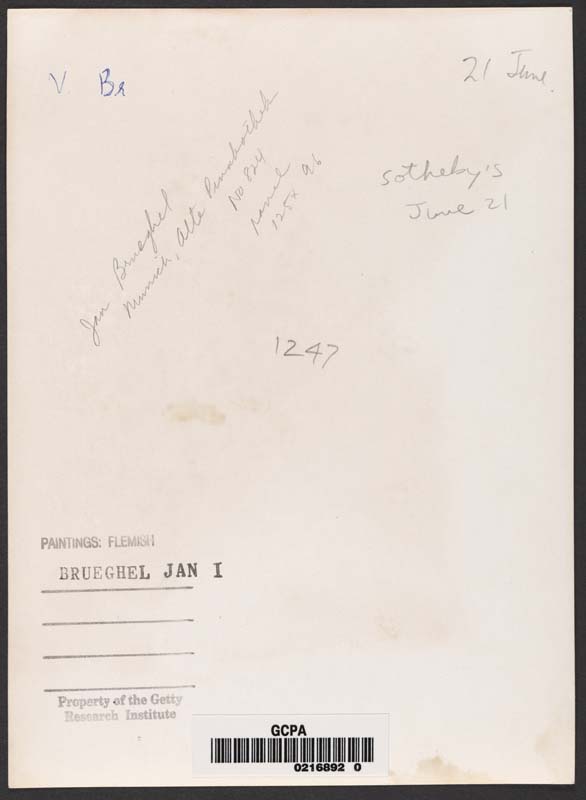 V Br
21 June.
Jan Brueghel
Munich, Alte Pinakothek
No 824
panel
125 x 96
Sotheby's
June 21
1247
PAINTINGS: FLEMISH
BRUEGHEL JAN I
Property of the Getty
Research Institute
GCPA
0216892 0